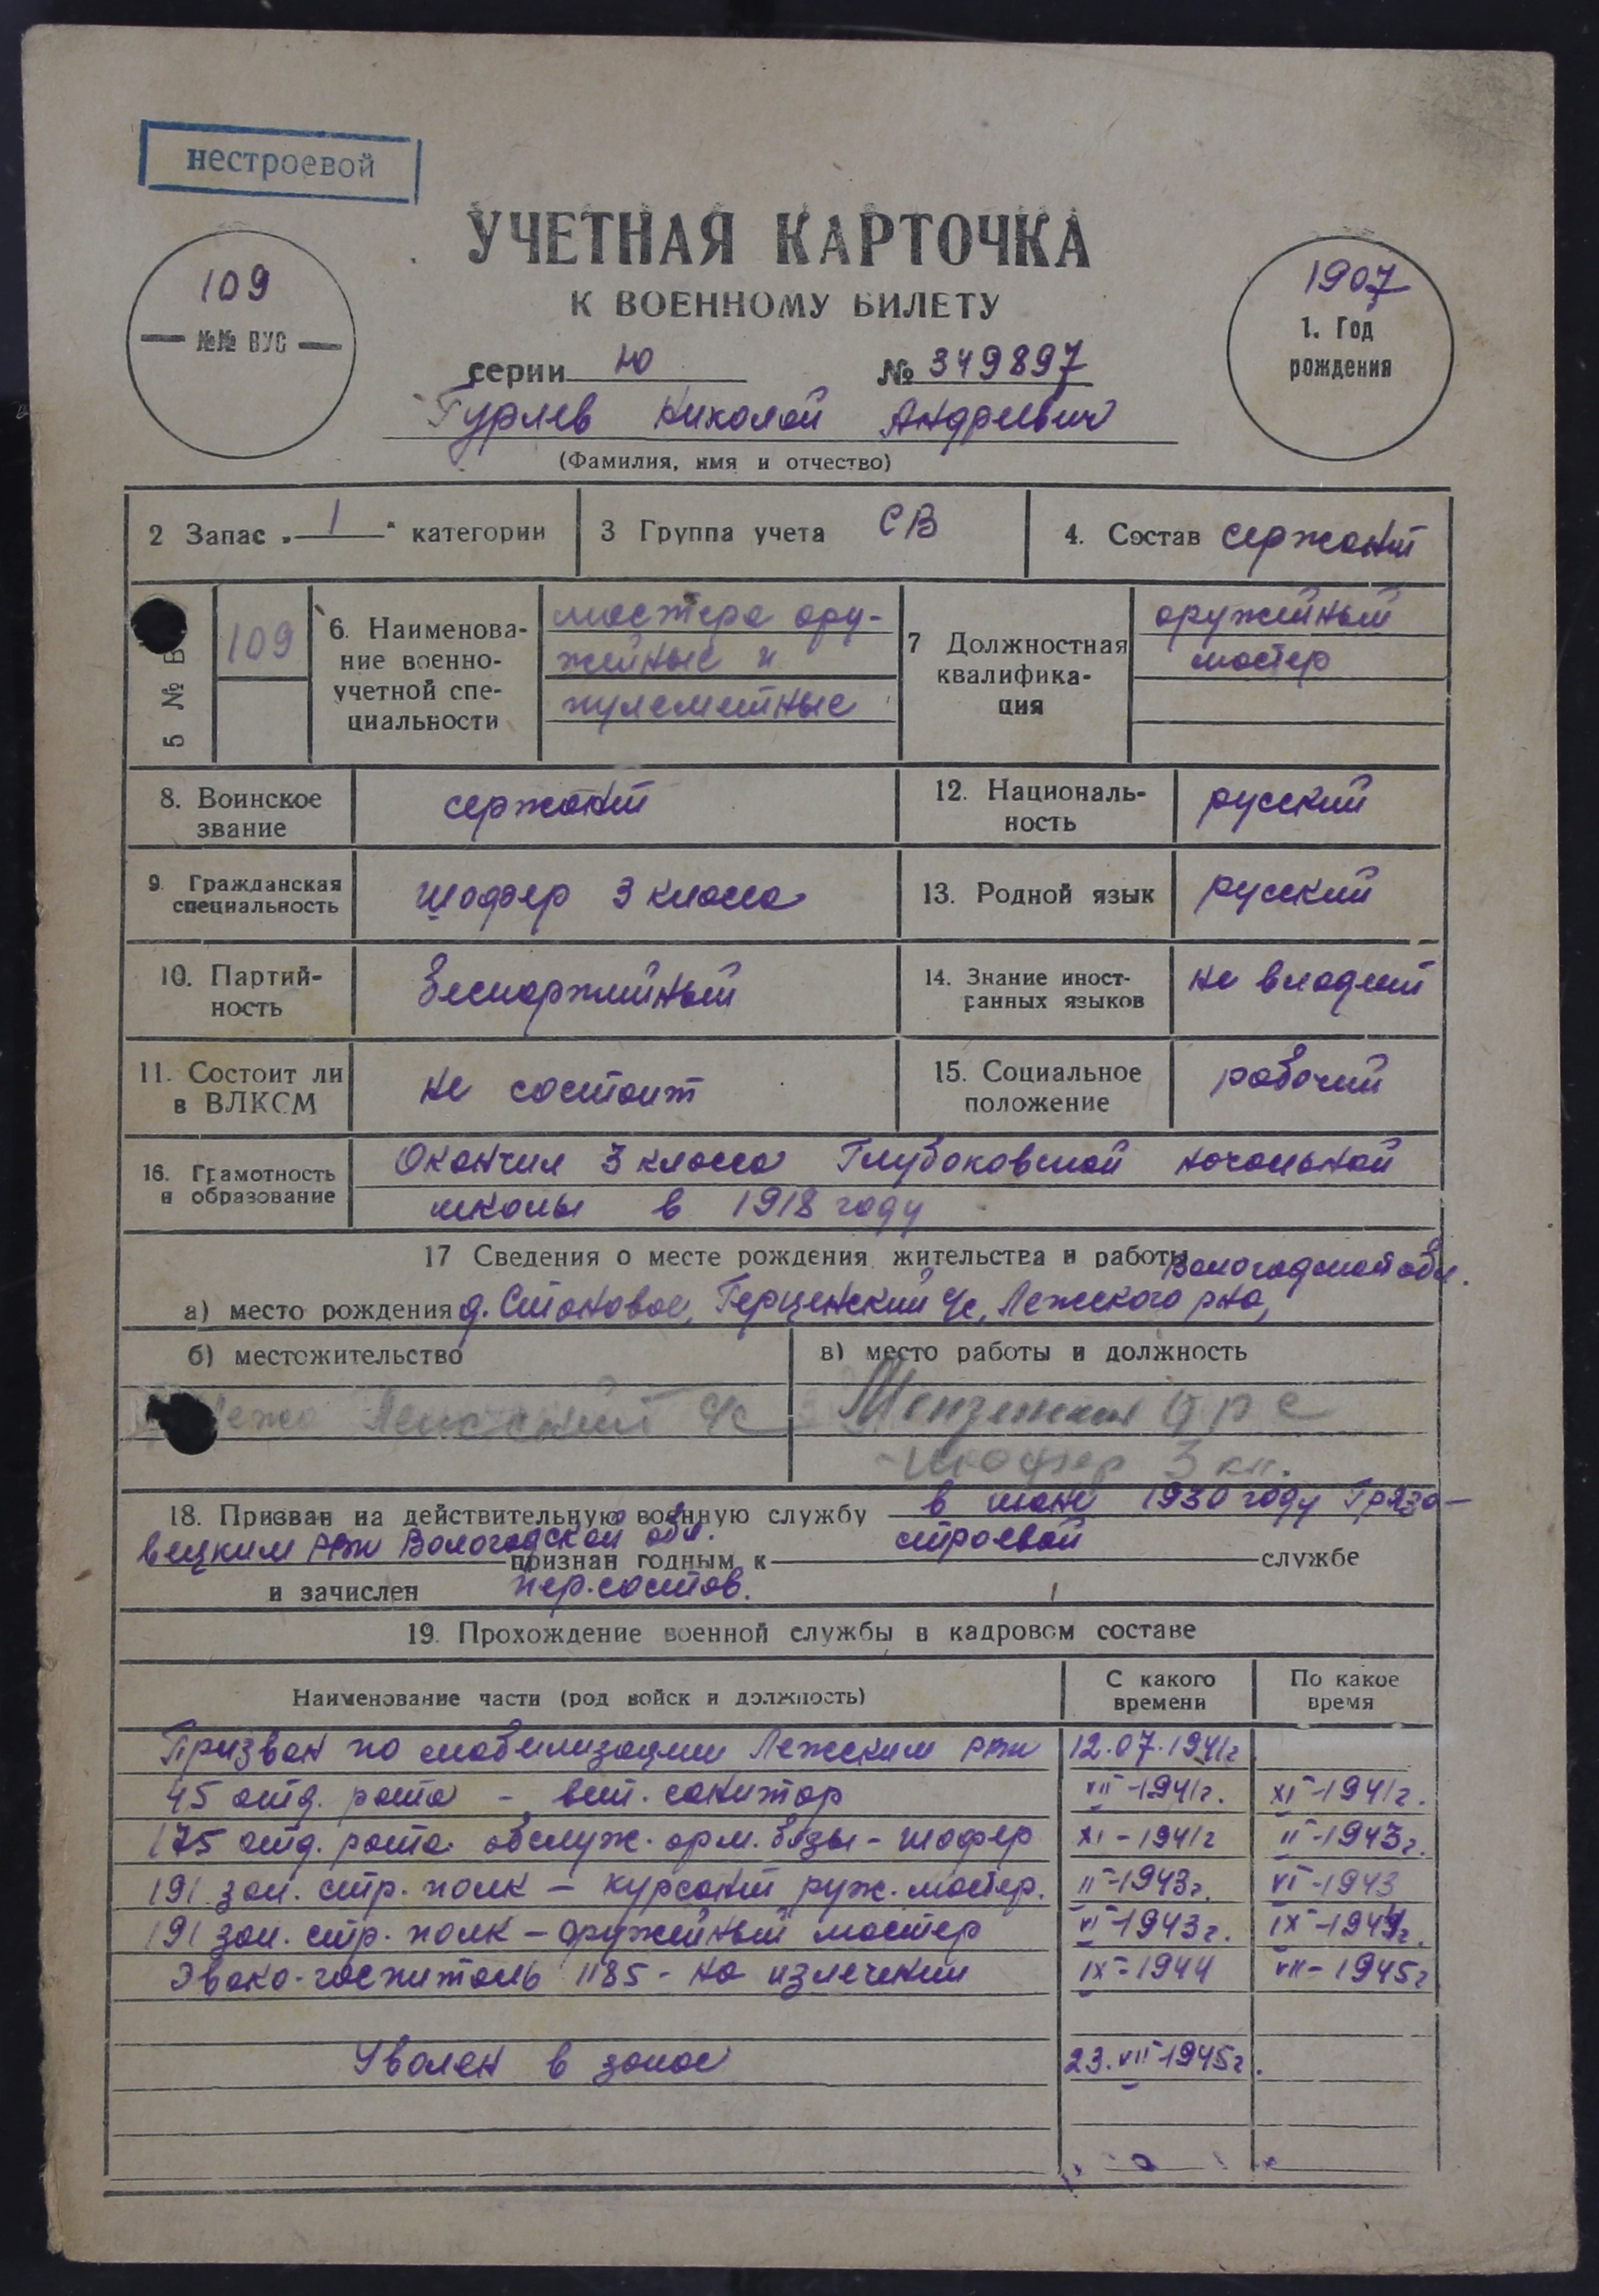 нестроевой
УЧЕТНАЯ КАРТОЧКА
К ВОЕННОМУ БИЛЕТУ
109
№№ ВУС
1907
1. Год
рождения
серии Ю № 349897
Гурлев Николай Андреевич
(Фамилия, имя и отчество)
2 Запас „ 1 " категории
3 Группа учета СВ
4. Состав сержант
5 № В
109
6. Наименова-
ние военно-
учетной спе-
циальности
мастера ору-
жейные и
пулеметные
7 Должностная
квалифика-
ция
оружейный
мастер
8. Воинское
звание
сержант
12. Националь-
ность
русский
9. Гражданская
специальность
шофер 3 класса
13. Родной язык
русский
10. Партий-
ность
беспартийный
14. Знание иност-
ранных языков
не владеет
11. Состоит ли
в ВЛКСМ
не состоит
15. Социальное
положение
рабочий
16. Грамотность
и образование
Окончил 3 класса Глубоковской начальной
школы в 1918 году
17 Сведения о месте рождения жительства и работы
Вологодской обл.
а) место рождения д. Становое, Герценский с/с, Лежского р-на,
б) местожительство
в) место работы и должность
Лежа с/с
орс
шофер 3 кл.
18. Призван на действительную военную службу в 1930 году Грязо-
вецким РВК Вологодской обл. признан годным к строевой службе
и зачислен пер. состав.
19. Прохождение военной службы в кадровом составе
Наименование части (род войск и должность)
С какого
времени
По какое
время
Призван по мобилизации Лежским РВК 12.07.1941г
45 отд. рота - вет. санитар VII-1941г. XI-1941г.
175 отд. рота обслуж. арм. базы - шофер XI-1941г II-1943г.
191 зап. стр. полк - курсант руж. мастер. II-1943г. VI-1943
191 зап. стр. полк - оружейный мастер VI-1943г. IX-1944г.
Эвако-госпиталь 1185 - на излечении IX-1944 VII-1945г
Уволен в запас 23.VII-1945г.